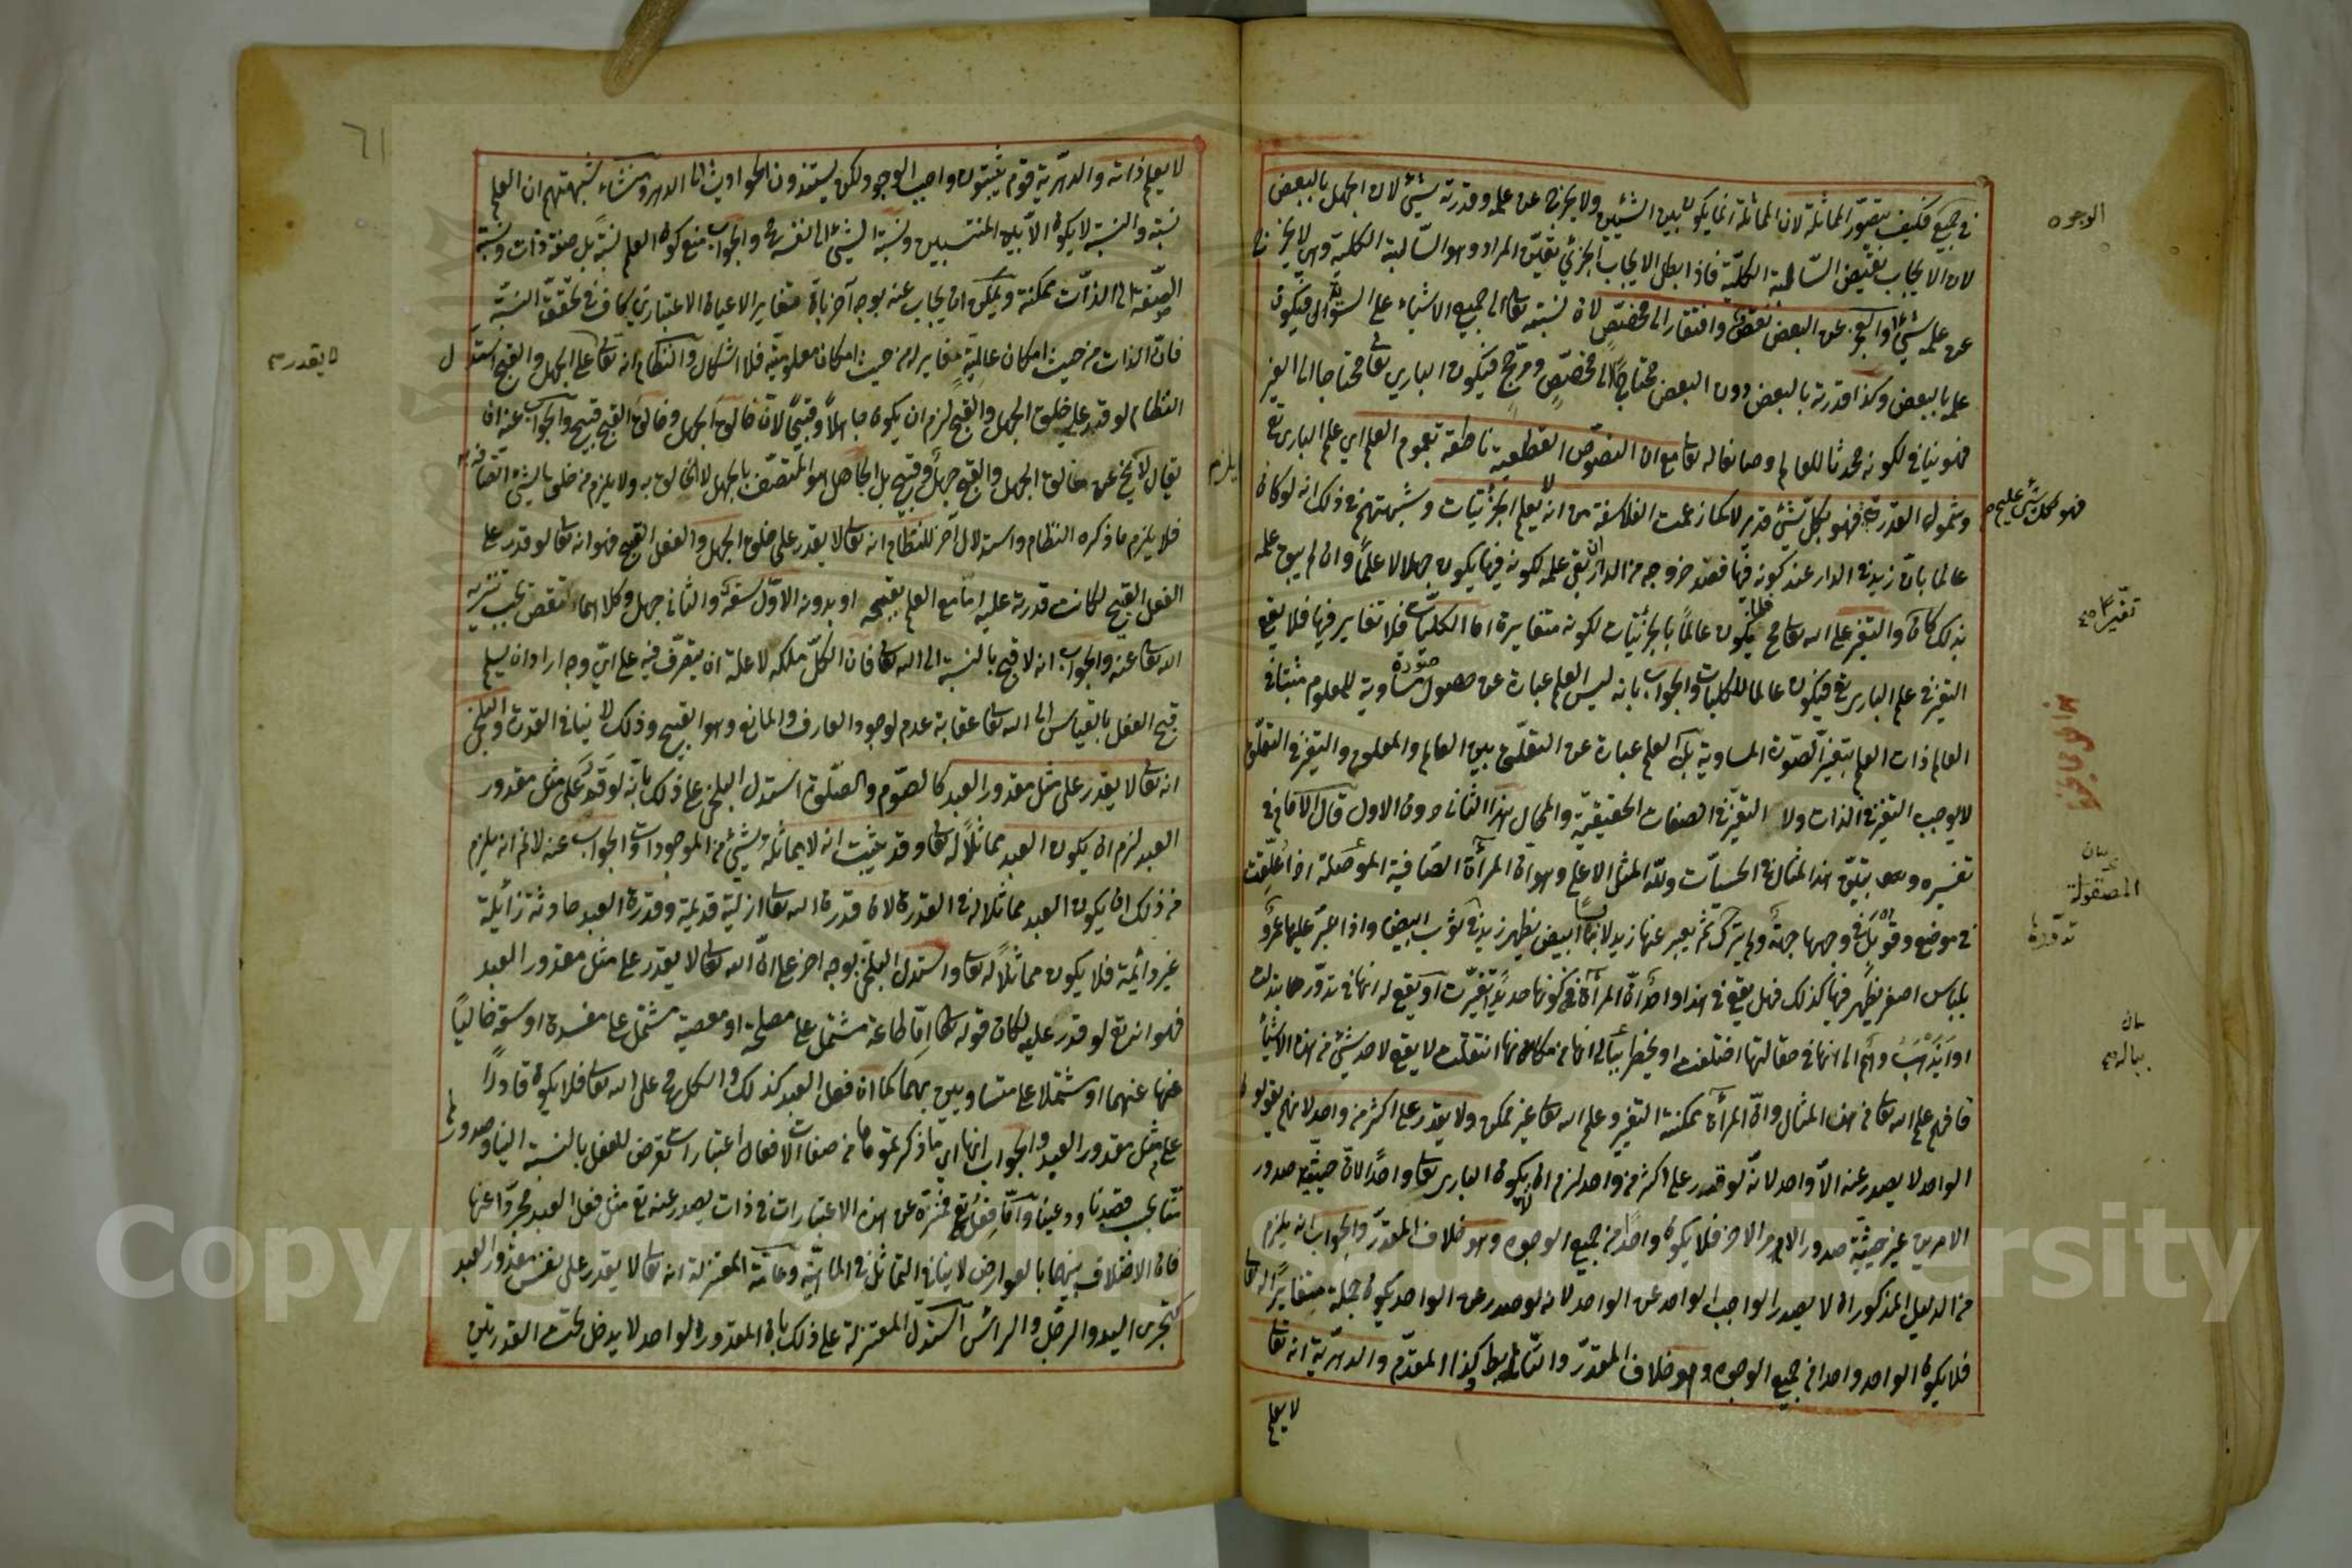 في جميع فكيف يتصور المماثلة لان المماثلة انما يكون بين الشيئين ولا يخرج عن علمه وقدرته شيئ لان الجهل بالبعض
لان الايجاب نقيض السالبة الكلية فاذا بطل الايجاب الجزئي تعين المراد وهو السالبة الكلية وهي لا يخرج
عن علمه شيئ او العجز عن البعض نقص وافتقار الى مخصص لان نسبته تعالى الى جميع الاشياء على السواء فيكون
علمه بالبعض وكذا قدرته بالبعض دون البعض محتاجا الى مخصص ومرجح فيكون الباري تعالى محتاجا الى الغير
فهو ينافي لكونه محدثا للعالم وصانعا له تعالى مع ان النصوص القطعية ناطقة بعموم العلم اي علم الباري تع
وشمول القدرة فهو بكل شيئ قدير لا كما زعمت الفلاسفة من انه لا يعلم الجزئيات وشبهتهم في ذلك انه لو كان
عالما بان زيد في الدار عند كونه فيها فعند خروجه من الدار ان بقي علمه لكونه فيها يكون جهلا لا علما وان لم يبق علمه
بذلك كان والتغير على الله تعالى مح فلا يكون عالما بالجزئيات لكونه متغايرة اما الكليات فلا تغاير فيها فلا يقع
التغير في علم الباري تع فيكون عالما للكليات والجواب بانه ليس العلم عبارة عن حصول صورة مساوية للمعلوم مثبتا في
العالم ذات العلم بتغير الصورة المساوية بل العلم عبارة عن التعلق بين العالم والمعلوم والتغير في التعلق
لا يوجب التغير في الذات ولا التغير في الصفات الحقيقية والمحال هذا الثاني دون الاول قال الامام في
تفسيره ومما يليق هذا المثال في الحسيات ولله المثل الاعلى وهو ان المرآة الصافية الموصلة اذا علقت
في موضع وقوبل في وجهها جهة ولم يترك ثم يعبر عنها زيد لابسا ابيض يظهر زيد في ثوب ابيض واذا عبر عليها عمرو
بلباس اصفر يظهر فيها كذلك فهل يقع في هذا واحد ان المرآة في كونها حديدا تغيرت او يقع له انها في تدورها تبدلت
او يذهب واهم الى انها في صقالتها اختلفت او يخطر ببال انها من مكانها انتقلت لا يقع لاحد شيئ من هذه الاشياء
فافهم علم الله تعالى من هذا المثال وان المرآة ممكنة التغير وعلم الله تعالى غير ممكن ولا يقدر على اكثر من واحد لانهم يقولون
الواحد لا يصدر عنه الا واحد لانه لو قدر على اكثر من واحد لزم ان لا يكون الباري تعالى واحدا لان حيثية صدور
الامرين غير حيثية صدور الامر الاخر فلا يكون واحدا من جميع الوجوه وهو خلاف المقدر والجواب انه يلزم
من الدليل المذكور ان لا يصدر الواجب الواحد عن الواحد لانه لو صدر عن الواحد يكون جملة متغايرا له تعالى
فلا يكون الواحد واحدا من جميع الوجوه وهو خلاف المقدر والتالي بط وكذا المقدم والدهرية انه تعالى
لا يعلم
الوجوه
فهو بكل شئ عليم
تغير
بيان
المصقولة
تدورها
بيان
بباله
لا يعلم ذاته والدهرية قوم يثبتون واجب الوجود ولكن يسندون الحوادث الى الدهر ومنشاء شبهتهم ان العلم
نسبة والنسبة لا يكون الا بين المنتسبين ونسبة الشيئ الى نفسه مح والجواب منع كون العلم نسبة بل صفة ذات ونسبة
الصفة الى الذات ممكنة ويمكن ان يجاب عنه بوجه آخر بان متغاير الاعيان الاعتباري كاف في تحقق النسبة
فان الذات من حيث امكان عالمية مغاير له من حيث امكان معلومية فلا اشكال والنظام انه تعالى على الجهل والقبح استدل
النظام لو قدر على خلق الجهل والقبح لزم ان يكون جاهلا وقبيحا لان خالق الجهل وخالق القبح قبيح والجواب عنه ان
يقال لا يخ عن خالق الجهل والقبح جهل وقبيح بل الجاهل هو المتصف بالجهل لا الخالق به ولا يلزم من خلق الشيئ اتصافه
فلا يلزم ما ذكره النظام واستدلال آخر للنظام انه تعالى لا يقدر على خلق الجهل والفعل القبيح فهو انه تعالى لو قدر على
الفعل القبيح لكانت قدرته عليه اما مع العلم بقبحه او بدونه الاول سفه والثاني جهل وكلاهما نقص يجب تنزيه
الله تعالى عنه والجواب انه لا قبح بالنسبة الى الله تعالى فان الكل ملكه لا علة ان يتصرف فيه على اي وجه اراد وان يسلم
قبح الفعل بالقياس الى الله تعالى عقابه عدم لوجود الصارف والمانع وهو القبيح وذلك لا ينافي القدرة والبلخي
انه تعالى لا يقدر على مثل مقدور العبد كالصوم والصلوة استدل البلخي على ذلك بانه لو قدر على مثل مقدور
العبد لزم ان يكون العبد مماثلا له تعالى وقد يثبت انه لا يماثله شيئ من الموجودات والجواب عنه لانم انه يلزم
من ذلك ان يكون العبد مماثلا له في القدرة لان قدرة الله تعالى ازلية قديمة وقدرة العبد حادثة زائلة
غير دائمة فلا يكون مماثلا له تعالى واستدل البلخي بوجه اخر على ان الله تعالى لا يقدر على مثل مقدور العبد
فهو انه تع لو قدر عليه لكان قوله تعالى اما طاعة مشتمل على مصلحة او معصية مشتمل على مفسدة او سفه خاليا
عنها عنهما او مشتملا على متساويين بهما كما ان فعل العبد كذلك والكل مح على الله تعالى فلا يكون قادرا
على مثل مقدور العبد والجواب انها اي ما ذكرتموها من صفات الافعال اعتبارات تعرض للفعل بالنسبة الينا وصدوره
منا بحسب قصدنا ودعينا واما فعله تع منزه عن هذه الاعتبارات في ذات يصدر عنه تع مثل فعل العبد مجردا عنها
فان الاختلاف بينهما بالعوارض لا ينافي التماثل في الماهية وعامة المعتزلة انه تعالى لا يقدر على نفس مقدور العبد
كتحريك اليد والرجل والرائس استدل المعتزلة على ذلك بان المقدورة الواحد لا يدخل تحت القدرتين
لا يقدر
يلزم
٦١
Copyright © King Saud University